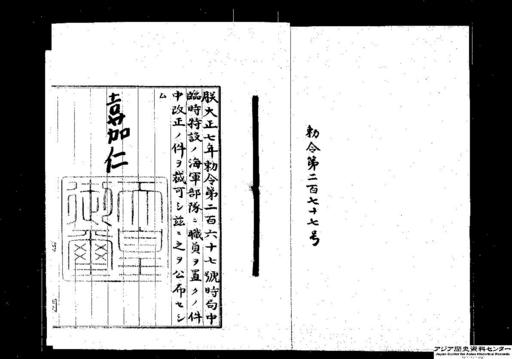 勅令第二百七十七号
朕大正七年勅令第二百六十七號時局中
臨時特設ノ海軍部隊ニ職員ヲ置クノ件
中改正ノ件ヲ裁可シ茲ニ之ヲ公布セシ
ム
嘉仁
天皇
御璽
アジア歴史資料センター
Japan Center for Asian Historical Records